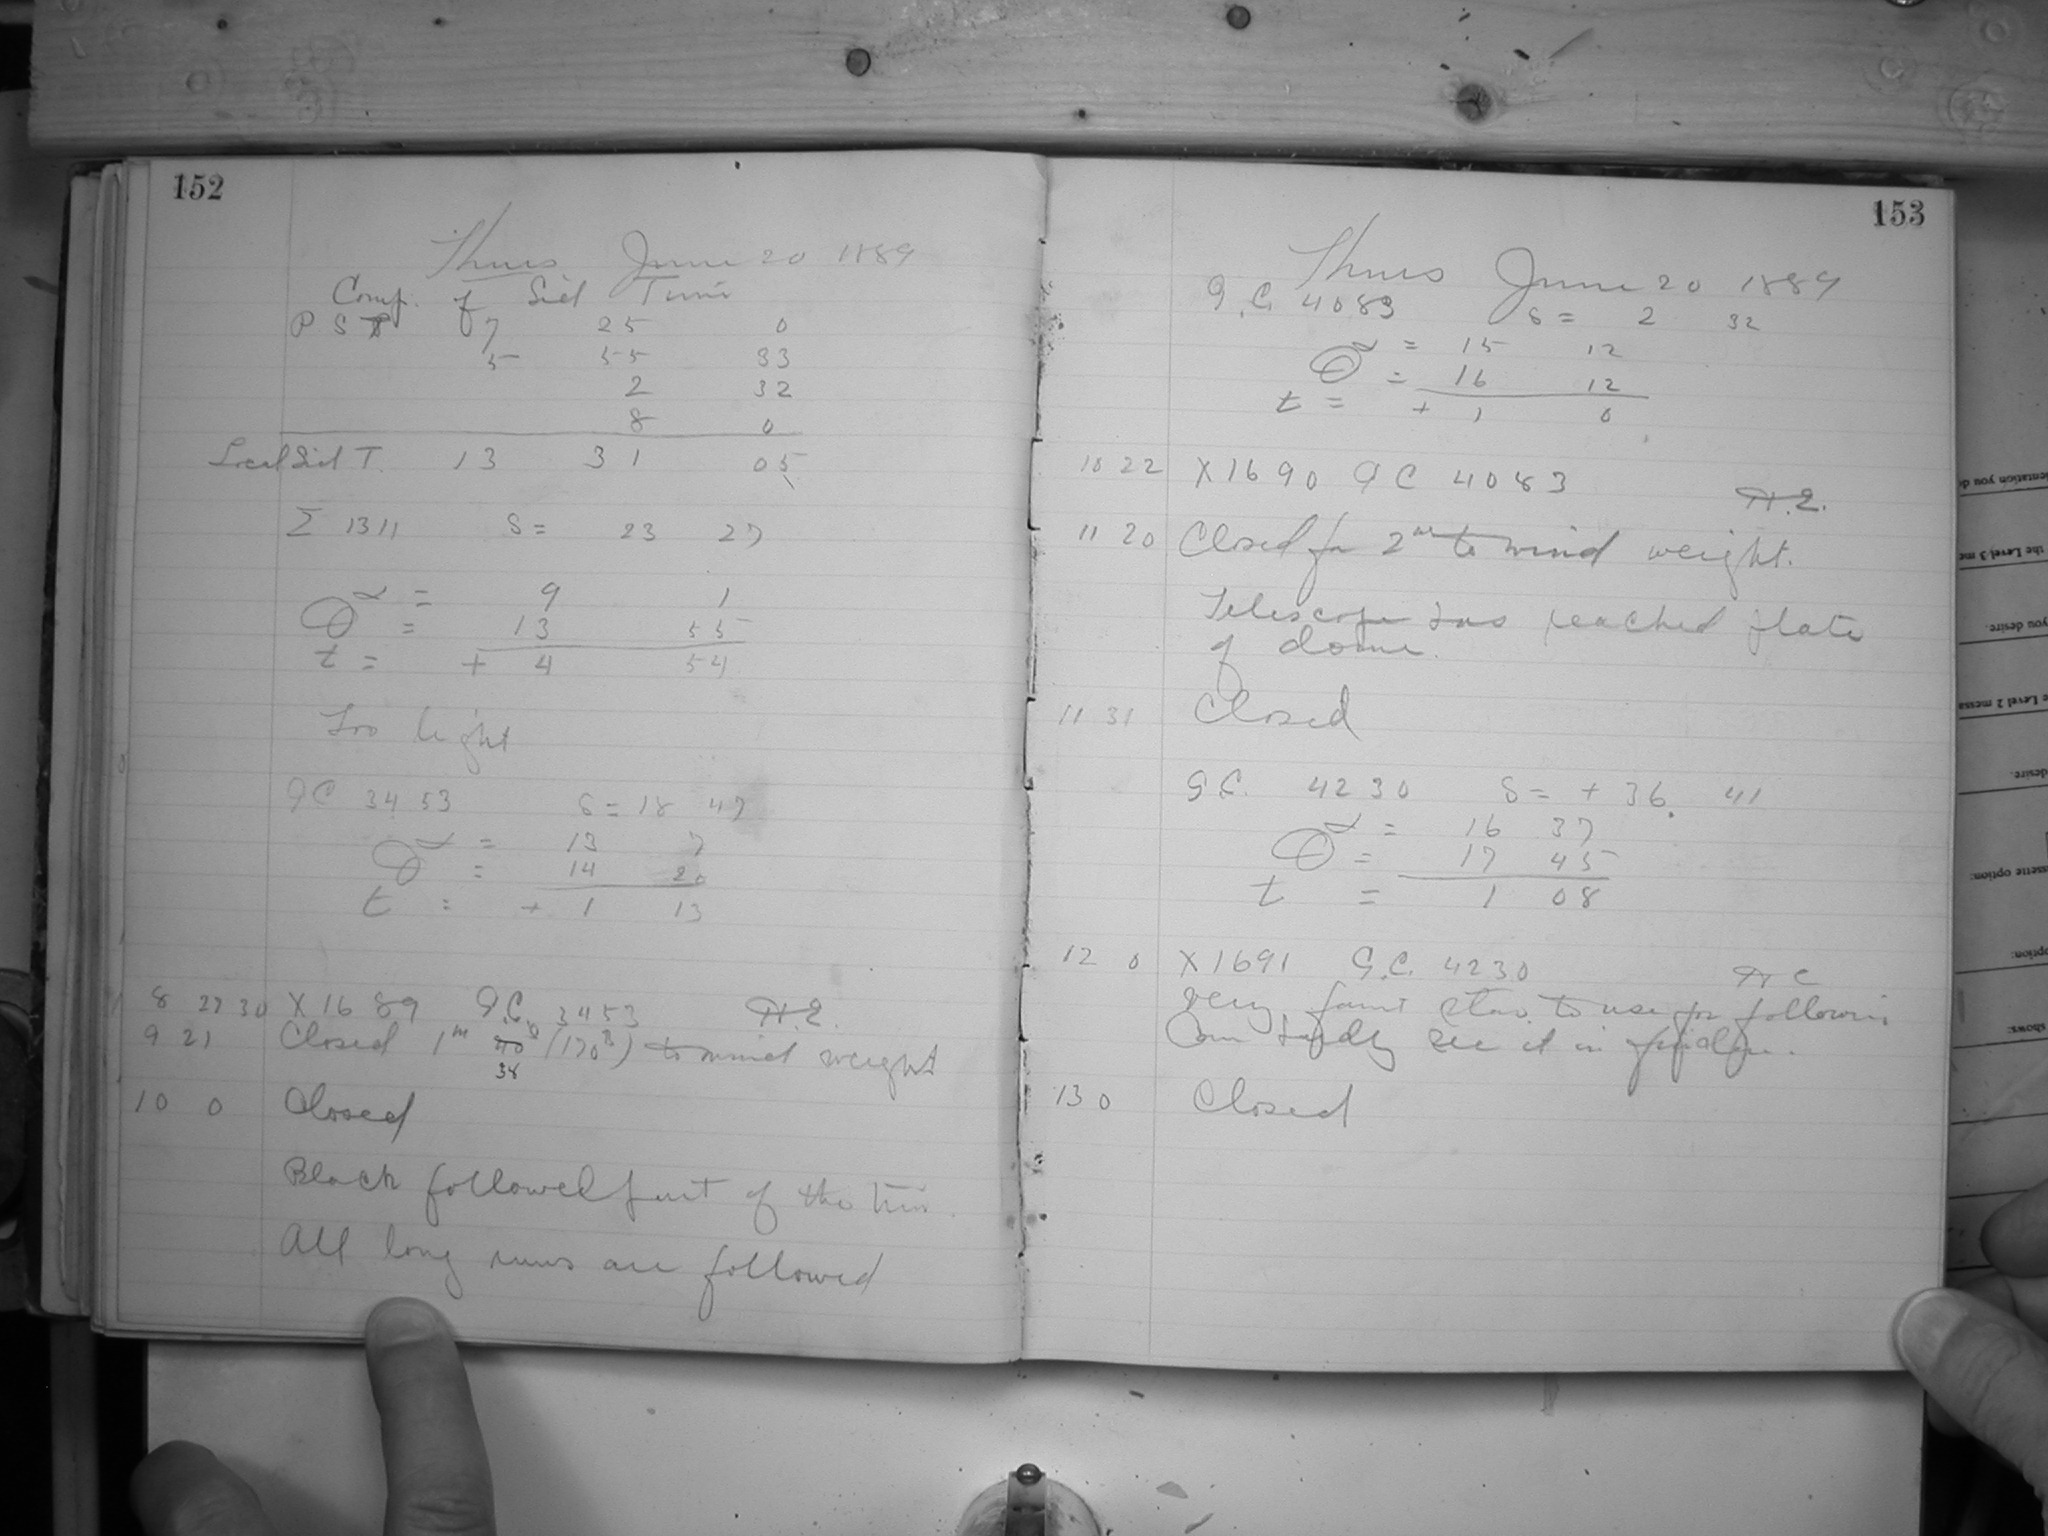 152
Thurs June 20 1889
Comp. of Sid Time
P S T 7 25 0
5 55 33
2 32
8 0
Local Sid T. 13 31 05
Σ 1311 δ = 23 27
α = 9 1
θ = 13 55
t = + 4 54
Too light
G C 3453 δ = 18 47
α = 13 7
θ = 14 20
t = + 1 13
8 27 30 X 1689 G.C. 3453 H.E.
9 21 Closed 1m 40s (170s) to wind weight
38
10 0 Closed
Black followed part of the time.
All long runs are followed
153
Thurs June 20 1889
G.C. 4083 δ = 2 32
α = 15 12
θ = 16 12
t = + 1 0
10 22 X 1690 G C 4083
H.E.
11 20 Closed for 2m to wind weight.
Telescope has reached plate
of dome.
11 31 Closed
G.C. 4230 δ = + 36. 41
α = 16 37
θ = 17 45
t = 1 08
12 0 X 1691 G.C. 4230 H C
Very faint star to use for following
Can hardly see it in
13 0 Closed